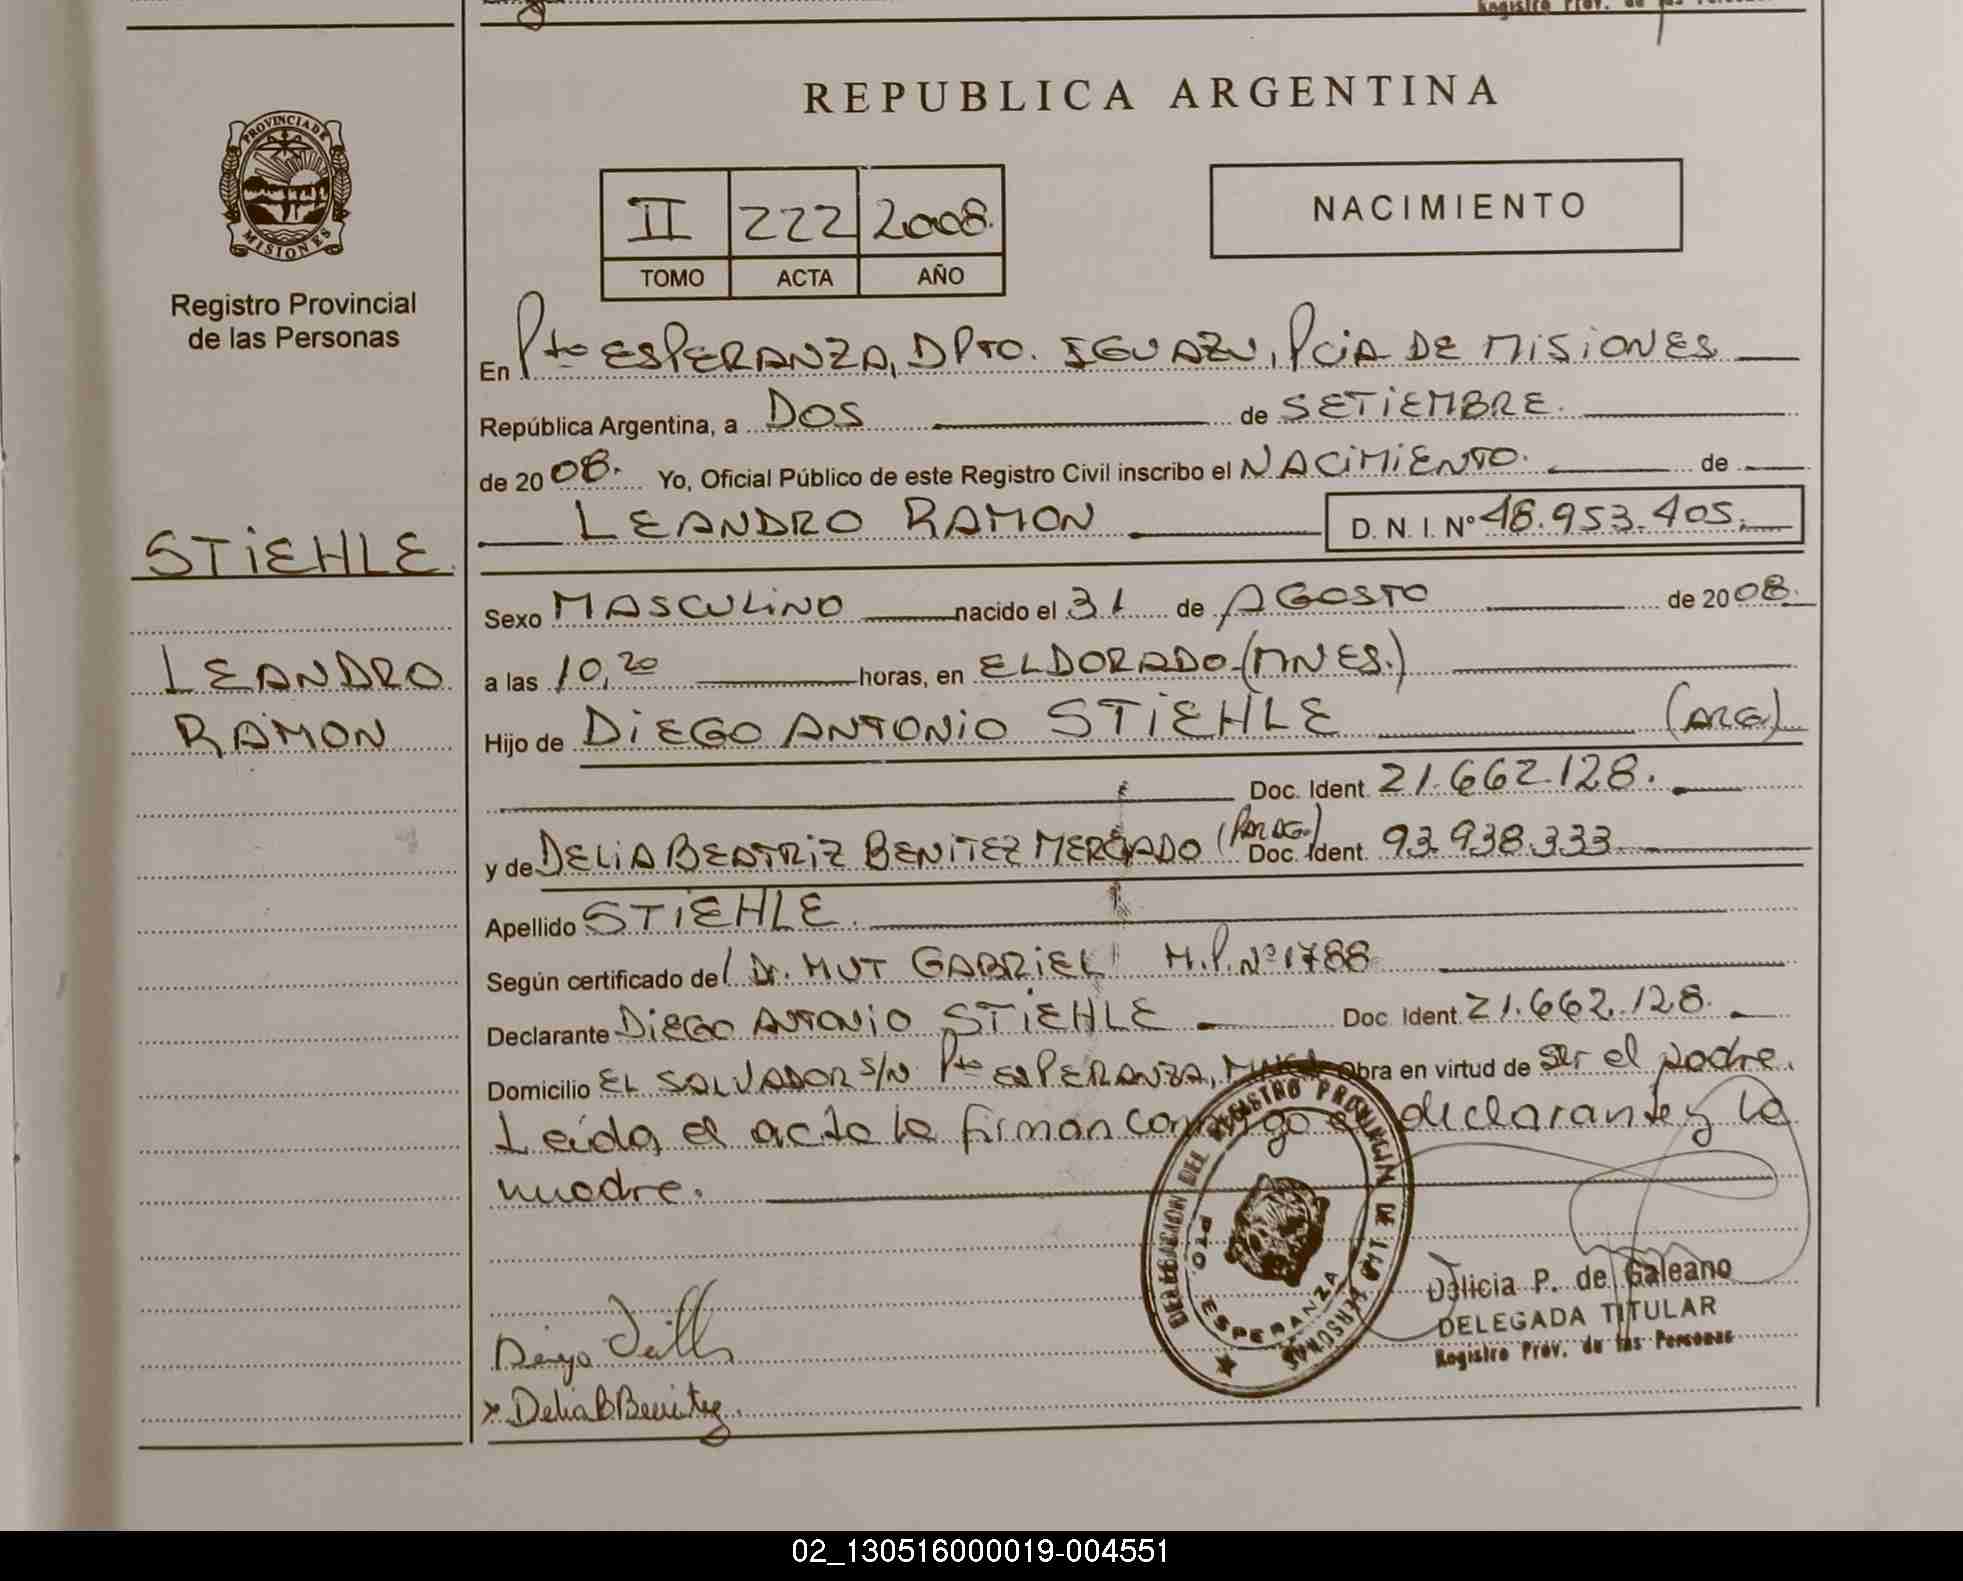 Registro Prov. de las Personas
REPUBLICA ARGENTINA
PROVINCIA DE
MISIONES
Registro Provincial
de las Personas
II 222 2008.
TOMO ACTA AÑO
NACIMIENTO
En Pto ESPERANZA, DPTO. IGUAZU, PCIA DE MISIONES
República Argentina, a DOS de SETIEMBRE.
de 2008. Yo, Oficial Público de este Registro Civil inscribo el NACIMIENTO. de
LEANDRO RAMON D. N. I. Nº 48.953.405.
STIEHLE.
Sexo MASCULINO nacido el 31 de AGOSTO de 2008.
LEANDRO
a las 10,20 horas, en ELDORADO-(MNES.)
RAMON
Hijo de DIEGO ANTONIO STIEHLE (ARG.)
Doc. Ident. 21.662.128.
y de DELIA BEATRIZ BENITEZ MERCADO (PARAG.) Doc. Ident. 93.938.333
Apellido STIEHLE.
Según certificado del Dr. MUT GABRIEL M.P. Nº 1788
Declarante DIEGO ANTONIO STIEHLE Doc. Ident. 21.662.128.
Domicilio EL SALVADOR S/N Pto ESPERANZA, Obra en virtud de ser el padre.
Leída el acta la firman conmigo el declarante y la
madre.
DELEGACION DEL REGISTRO PROVINCIAL DE LAS PERSONAS
PTO. ESPERANZA
Delicia P. de Galeano
DELEGADA TITULAR
Registro Prov. de las Personas
Diego
x Delia B Benitez.
02_130516000019-004551